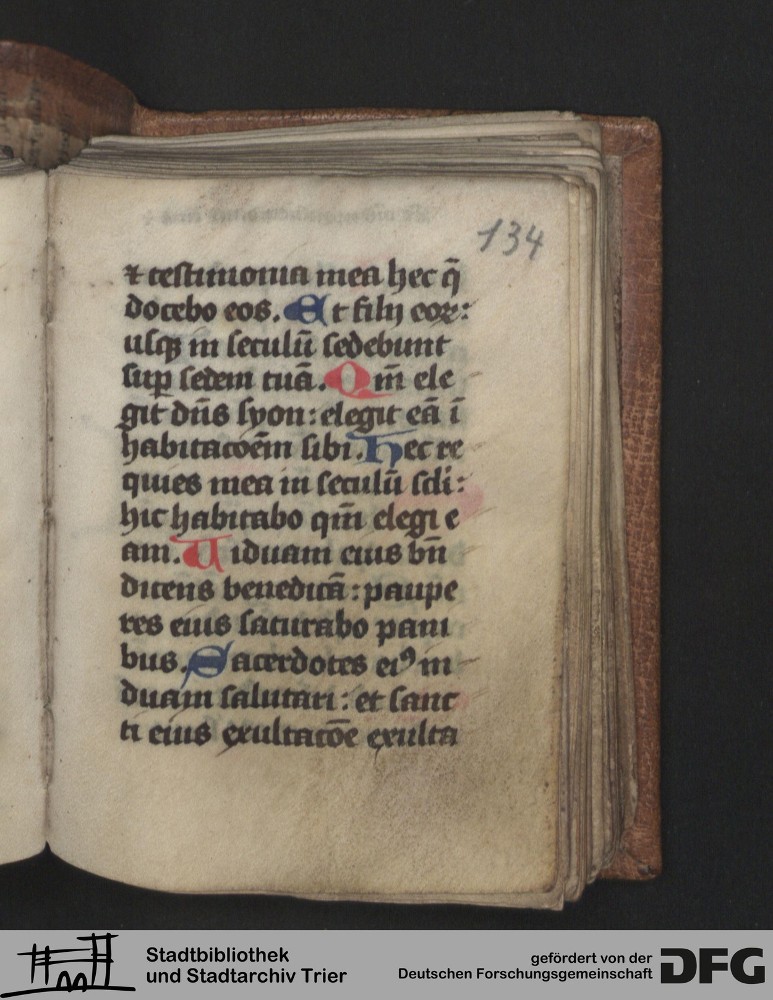 134
⁊ testimonia mea hec q̄
docebo eos. Et filij eoꝝ:
usqꝫ in seculū sedebunt
suꝑ sedem tuā. Qm̄ ele
git dn̄s syon: elegit eā ī
habitacoēm sibi. Hec re
quies mea in seculū scli:
hic habitabo qm̄ elegi e
am. Uiduam eius bn̄
dicens benedicā: paupe
res eius saturabo pani
bus. Sacerdotes eiꝰ in
duam salutari: et sanc
ti eius exultacōe exulta
Stadtbibliothek
und Stadtarchiv Trier
gefördert von der
Deutschen Forschungsgemeinschaft
DFG